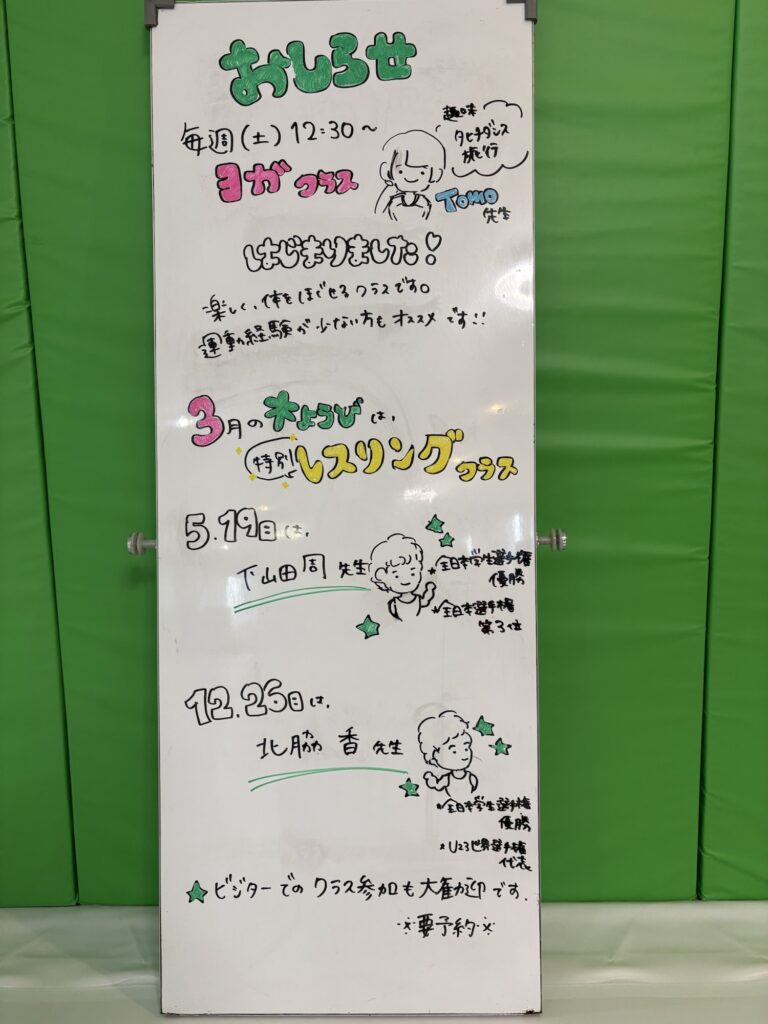 おしらせ
毎週(土)12:30~
ヨガクラス
趣味
タヒチダンス
旅行
Tomo
先生
はじまりました!
楽しく、体をほぐせるクラスです。
運動経験が少ない方もオススメです!!
3月の木ようびは、
特別レスリングクラス
5.19日は、
下山田周先生
*全日本学生選手権
優勝
*全日本選手権
第3位
12.26日は、
北脇香先生
*全日本学生選手権
優勝
*U23世界選手権
代表
★ビジターでのクラス参加も大歓迎です.
※要予約※